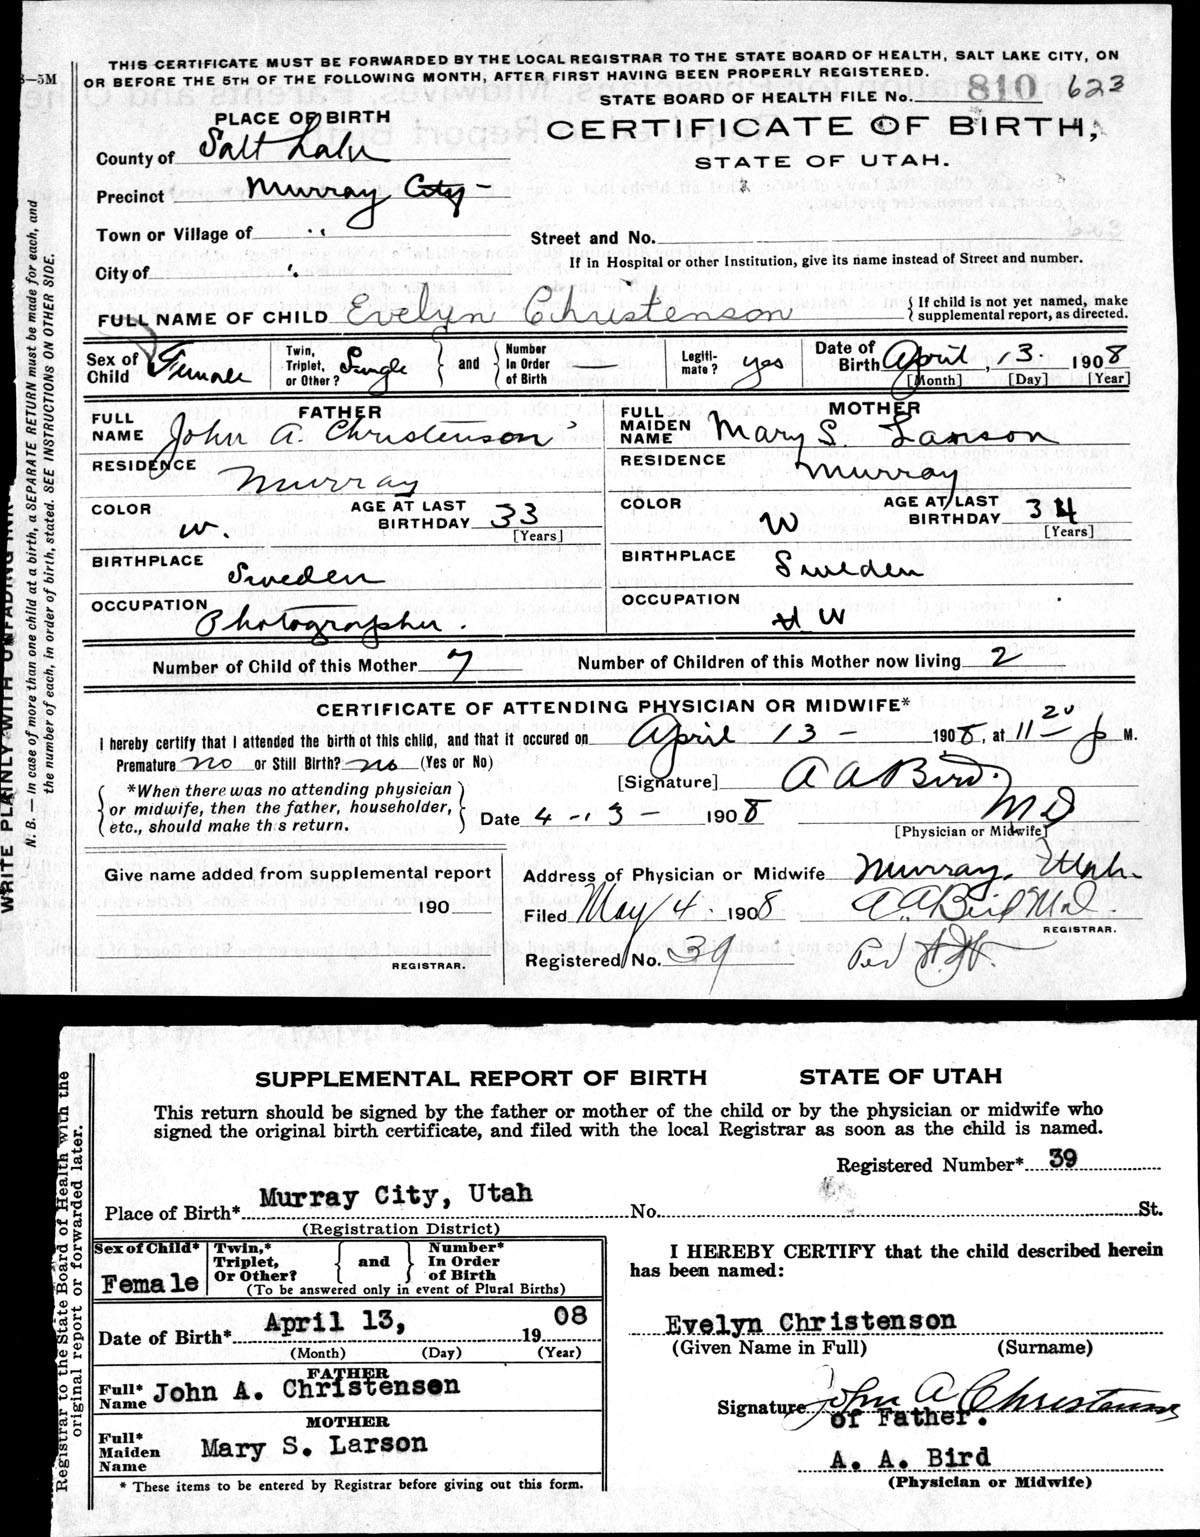 THIS CERTIFICATE MUST BE FORWARDED BY THE LOCAL REGISTRAR TO THE STATE BOARD OF HEALTH, SALT LAKE CITY, ON
OR BEFORE THE 5TH OF THE FOLLOWING MONTH, AFTER FIRST HAVING BEEN PROPERLY REGISTERED.
STATE BOARD OF HEALTH FILE No. 810 623
—5M
PLACE OF BIRTH
CERTIFICATE OF BIRTH,
STATE OF UTAH.
County of Salt Lake
Precinct Murray City -
Town or Village of "
Street and No.
City of
If in Hospital or other Institution, give its name instead of Street and number.
FULL NAME OF CHILD Evelyn Christenson
{ If child is not yet named, make
supplemental report, as directed.
Sex of Child Female
Twin, Triplet, or Other? Single
and
Number In Order of Birth —
Legiti- mate? yes
Date of Birth April, 13. 1908
[Month] [Day] [Year]
FATHER
FULL NAME John A. Christenson
RESIDENCE Murray
COLOR W.
AGE AT LAST BIRTHDAY 33
[Years]
BIRTHPLACE Sweden
OCCUPATION Photographer.
MOTHER
FULL MAIDEN NAME Mary S. Larson
RESIDENCE Murray
COLOR W
AGE AT LAST BIRTHDAY 34
[Years]
BIRTHPLACE Sweden
OCCUPATION H W
Number of Child of this Mother 7
Number of Children of this Mother now living 2
CERTIFICATE OF ATTENDING PHYSICIAN OR MIDWIFE*
I hereby certify that I attended the birth of this child, and that it occured on April 13 - 1908, at 11 20 p M.
Premature no or Still Birth? no (Yes or No)
[Signature] A A Bird.
M D
[Physician or Midwife]
*When there was no attending physician
or midwife, then the father, householder,
etc., should make this return.
Date 4 - 13 - 1908
Give name added from supplemental report
190
REGISTRAR.
Address of Physician or Midwife Murray, Utah.
Filed May 4. 1908 A. A Bird M.D.
REGISTRAR.
Registered No. 39
WRITE PLAINLY WITH UNFADING INK
N. B. — In case of more than one child at a birth, a SEPARATE RETURN must be made for each, and
the number of each, in order of birth, stated. SEE INSTRUCTIONS ON OTHER SIDE.
SUPPLEMENTAL REPORT OF BIRTH STATE OF UTAH
This return should be signed by the father or mother of the child or by the physician or midwife who
signed the original birth certificate, and filed with the local Registrar as soon as the child is named.
Registered Number* 39
Place of Birth* Murray City, Utah No. St.
(Registration District)
Sex of Child* Female
Twin,* Triplet, Or Other?
and
Number* In Order of Birth
(To be answered only in event of Plural Births)
Date of Birth* April 13, 19 08
(Month) (Day) (Year)
FATHER
Full* Name John A. Christensen
MOTHER
Full* Maiden Name Mary S. Larson
* These items to be entered by Registrar before giving out this form.
I HEREBY CERTIFY that the child described herein
has been named:
Evelyn Christenson
(Given Name in Full) (Surname)
Signature John A Christenson
of Father.
A. A. Bird
(Physician or Midwife)
Registrar to the State Board of Health with the
original report or forwarded later.